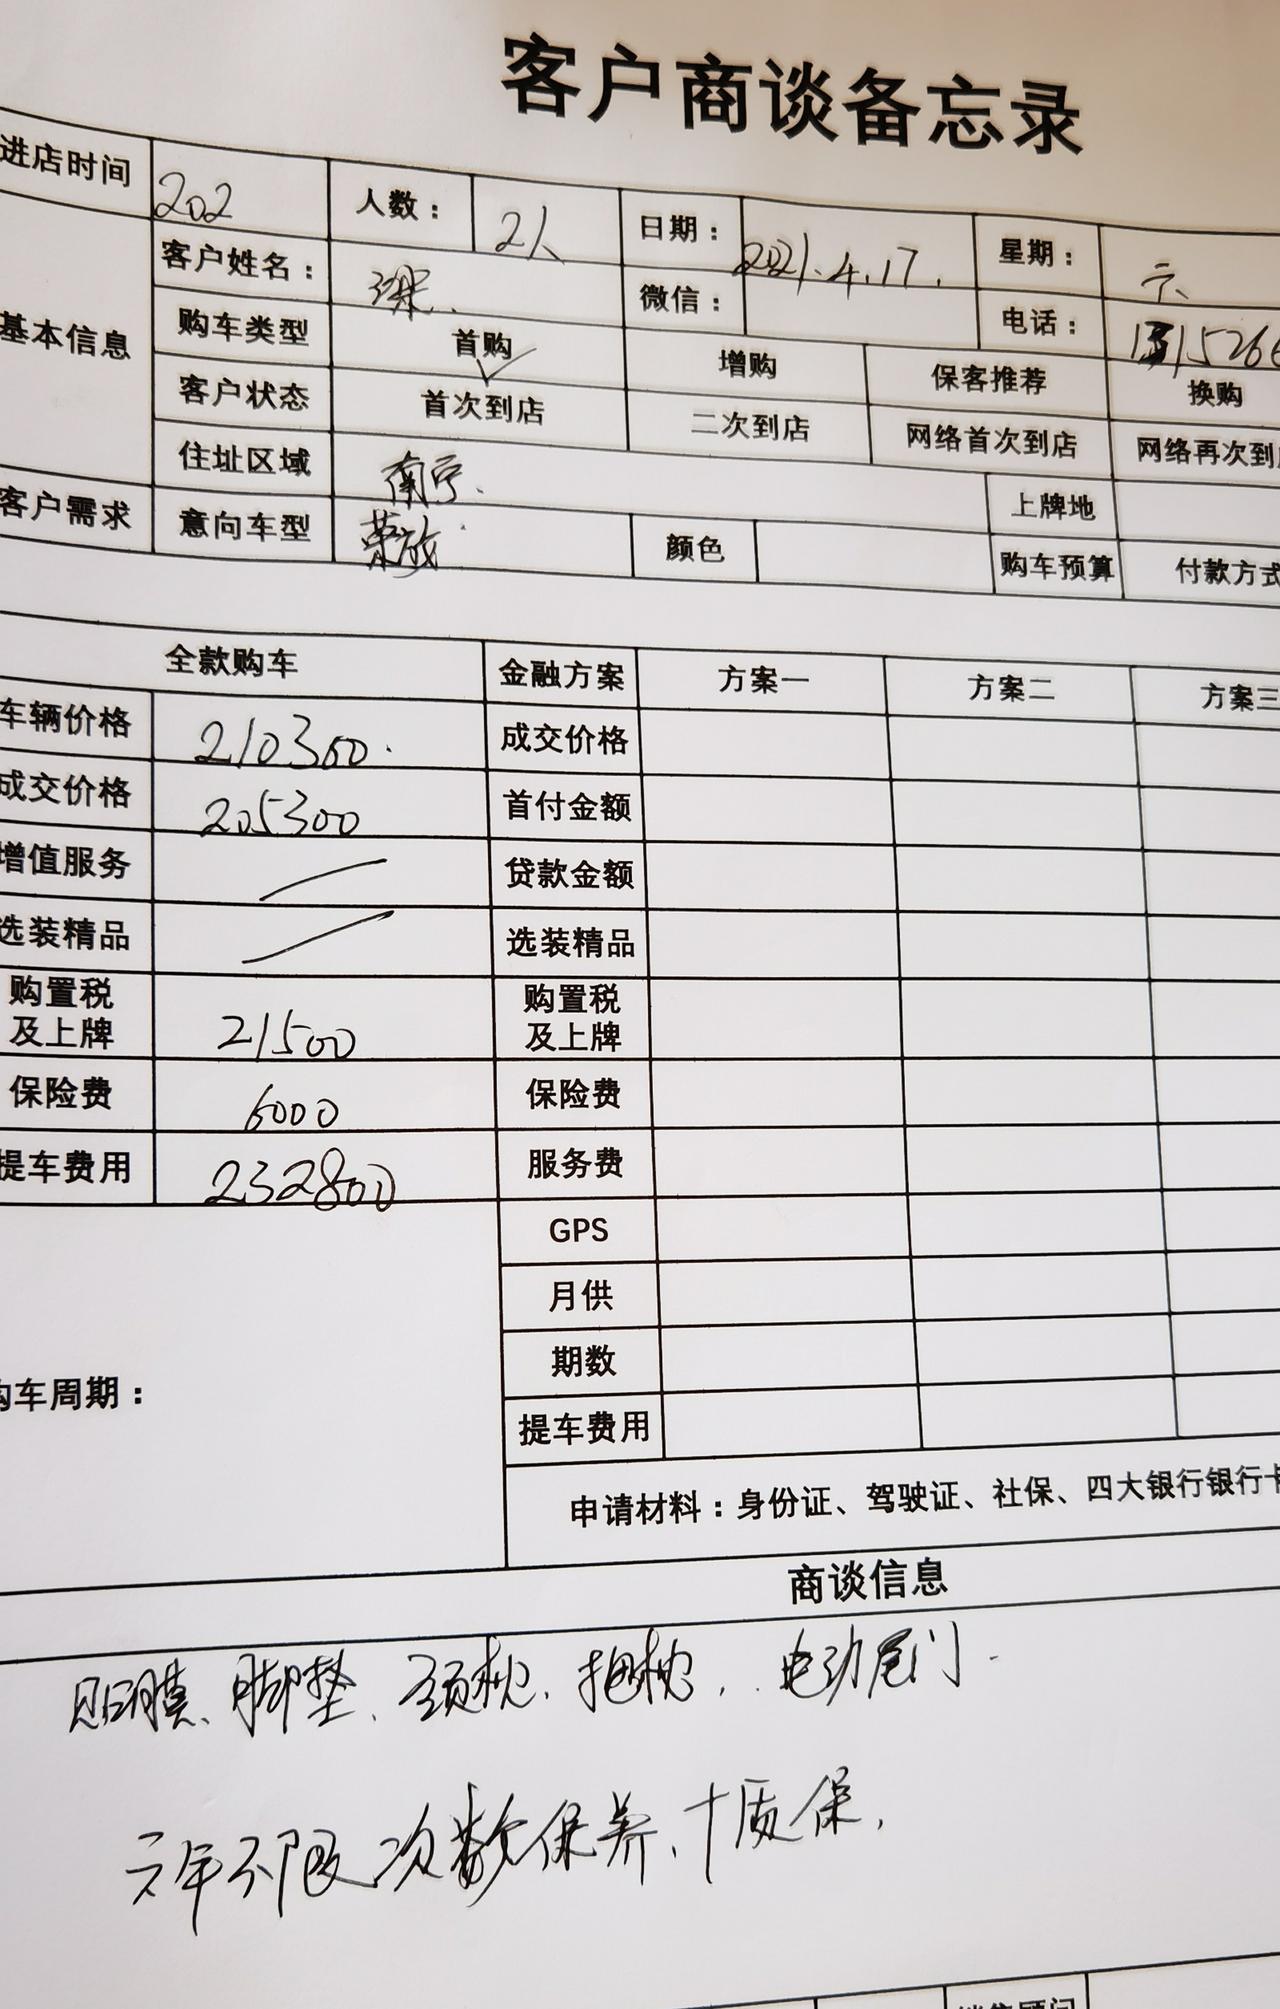 客户商谈备忘录
进店时间 202 人数： 2人 日期： 2021.4.17. 星期： 六
基本信息 客户姓名： 微信： 电话：
购车类型 首购 ✓ 增购 保客推荐 换购
客户状态 首次到店 二次到店 网络首次到店 网络再次到
住址区域 南宁. 上牌地
客户需求 意向车型 荣放. 颜色 购车预算 付款方式
全款购车 金融方案 方案一 方案二 方案三
车辆价格 210300. 成交价格
成交价格 205300 首付金额
增值服务 贷款金额
选装精品 选装精品
购置税 购置税
及上牌 21500 及上牌
保险费 6000 保险费
提车费用 232800 服务费
GPS
月供
期数
购车周期：
提车费用
申请材料：身份证、驾驶证、社保、四大银行银行卡
商谈信息
贴膜、脚垫、颈枕、抱枕、电动尾门.
六年不限次数保养、十质保.
销售顾问